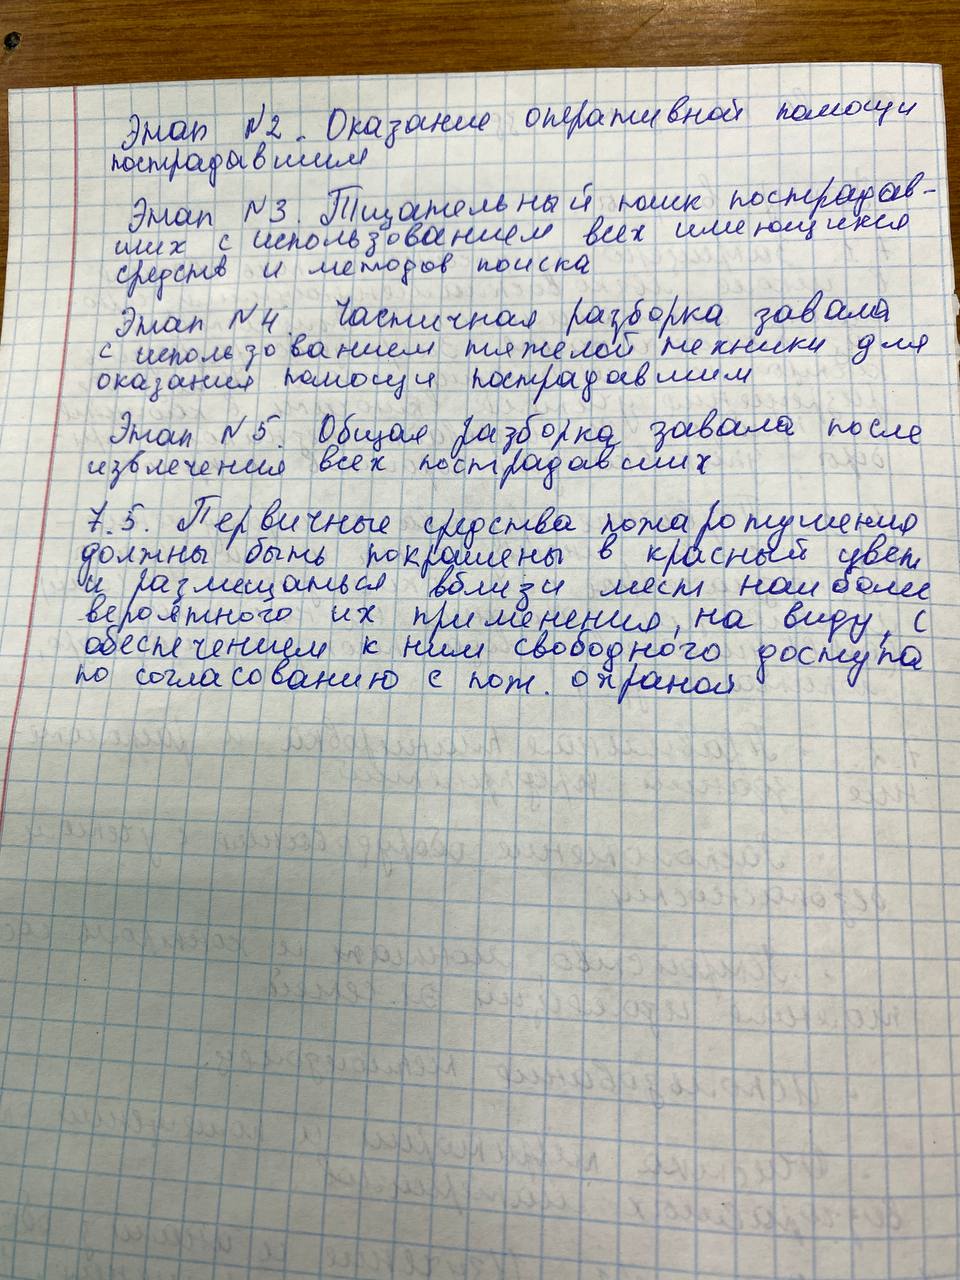 Этап №2. Оказание оперативной помощи
пострадавшим
Этап №3. Тщательный поиск пострадав-
ших с использованием всех имеющихся
средств и методов поиска
Этап №4. Частичная разборка завала
с использованием тяжёлой техники для
оказания помощи пострадавшим
Этап №5. Общая разборка завала после
извлечения всех пострадавших
7.5. Первичные средства пожаротушения
должны быть покрашены в красный цвет
и размещаться вблизи мест наиболее
вероятного их применения, на виду, с
обеспечением к ним свободного доступа
по согласованию с пож. охраной